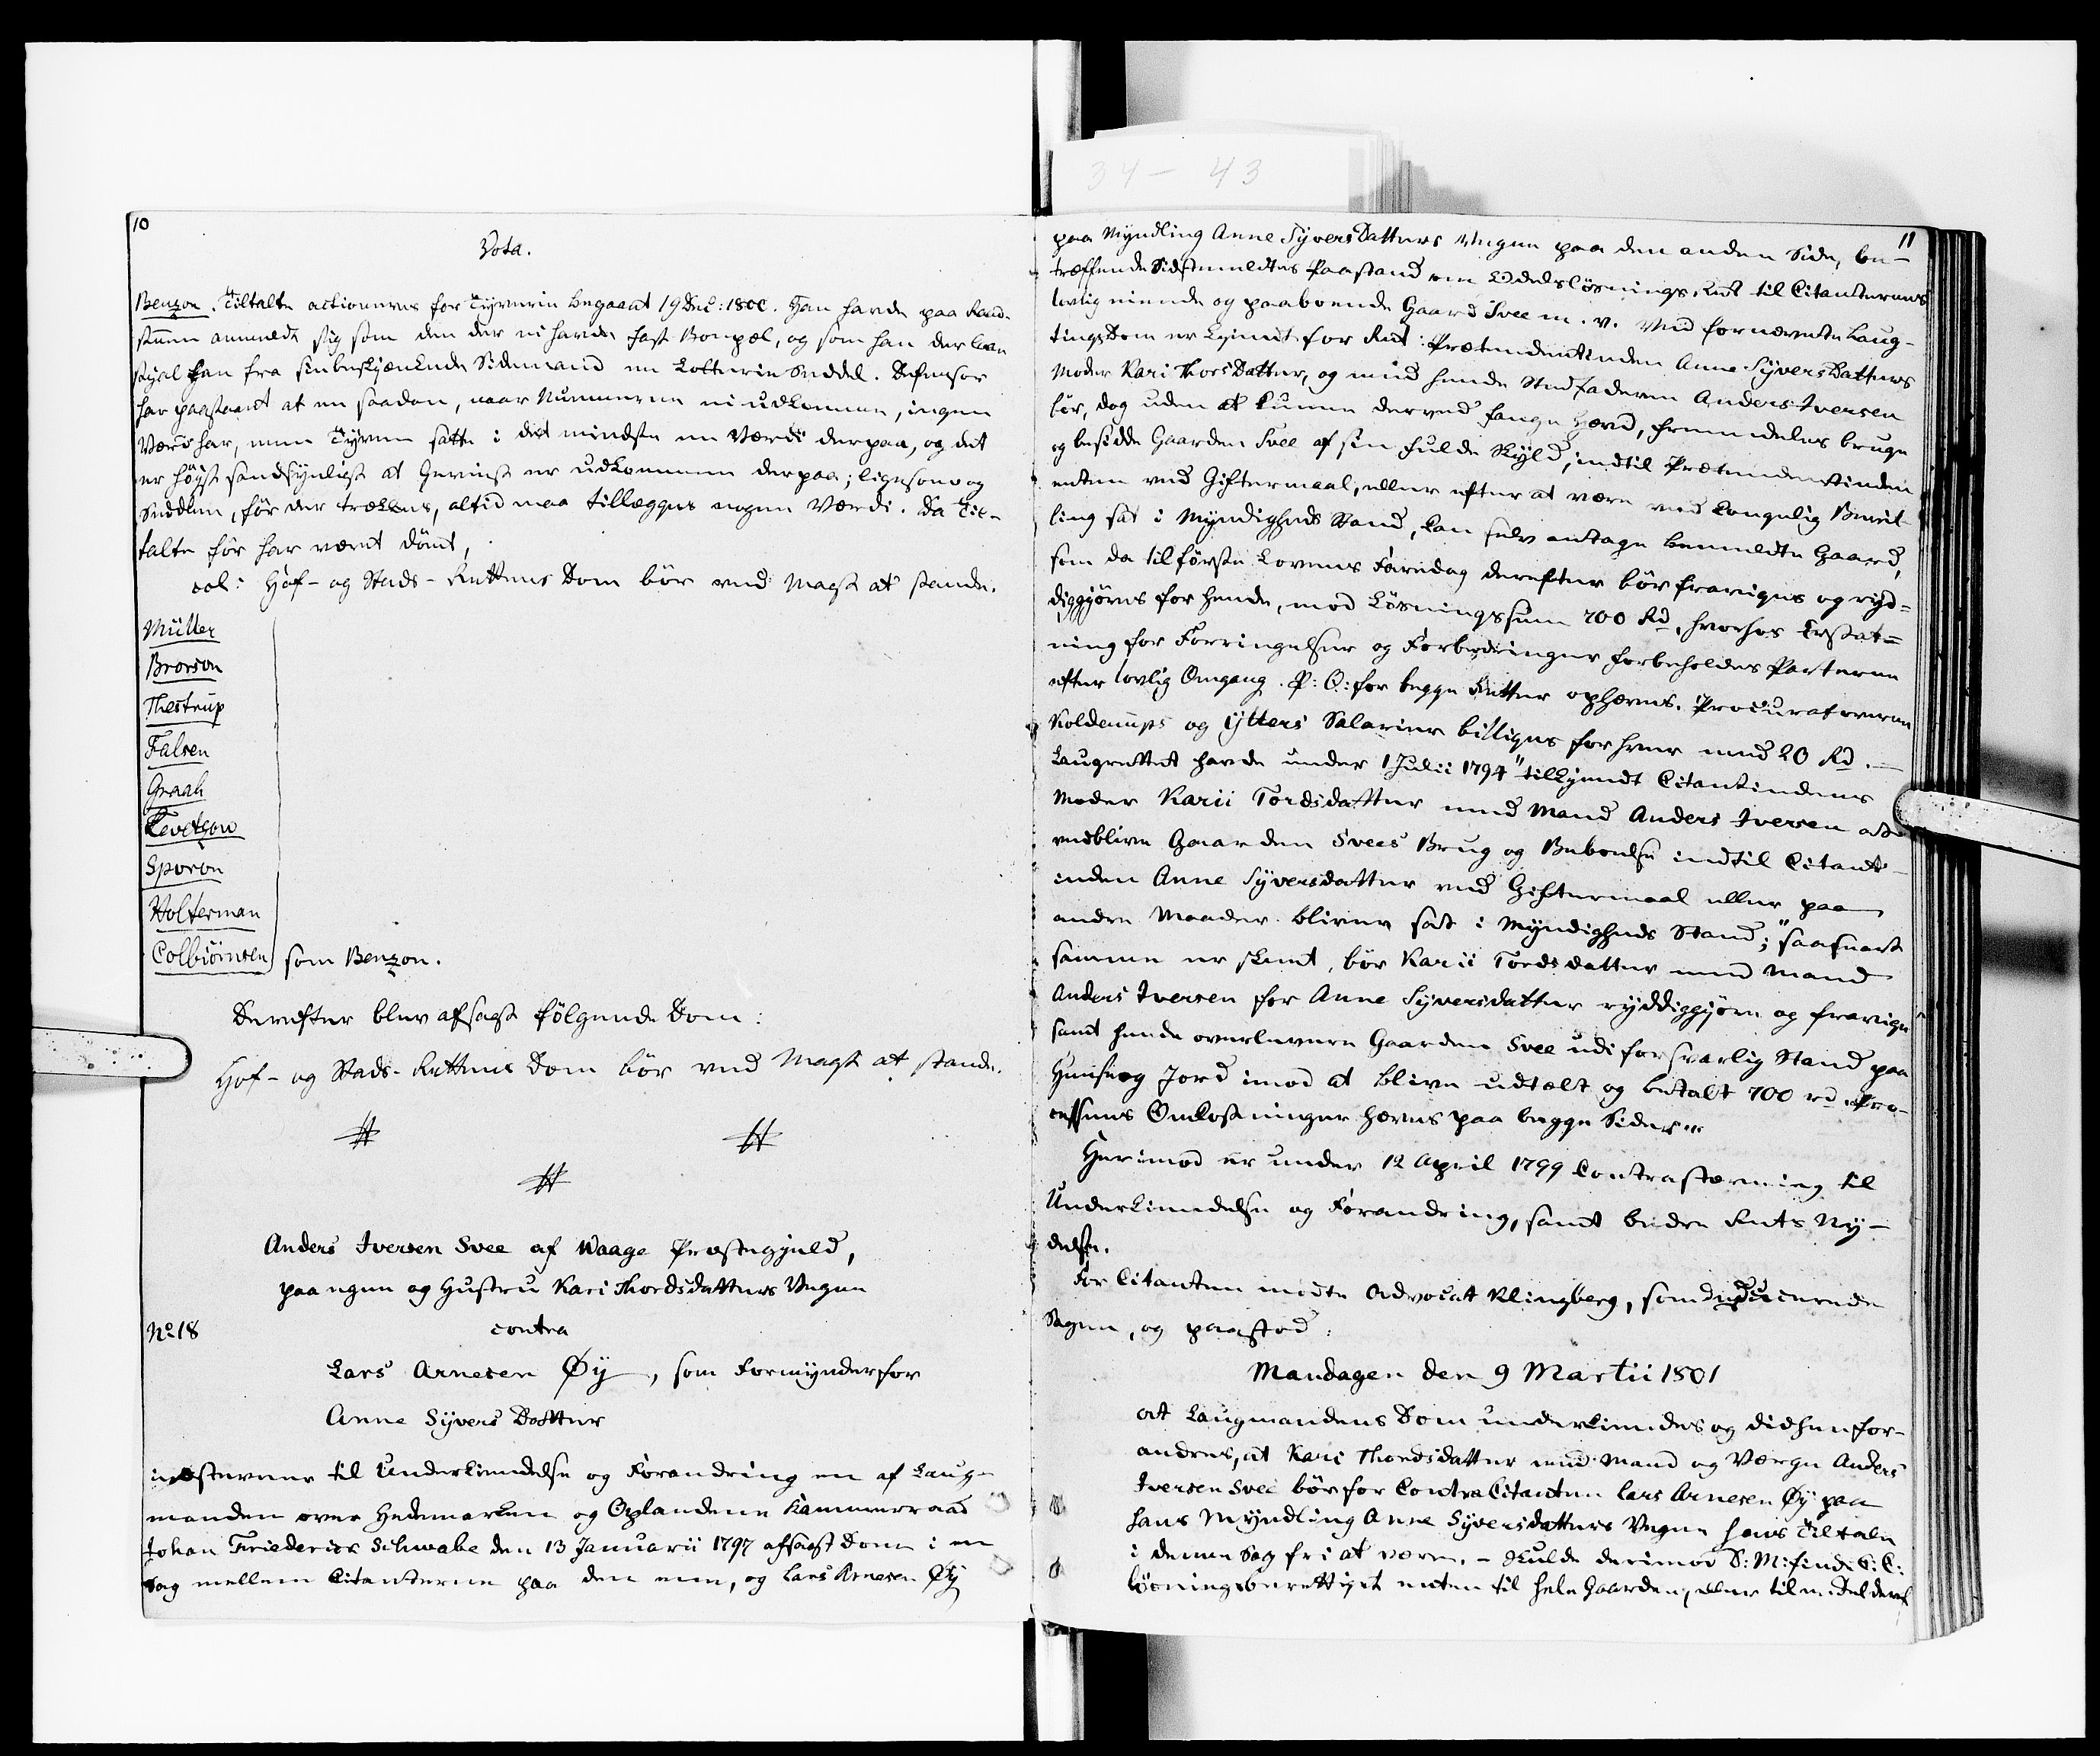 34 - 43
10
Vota.
Benzon. Tiltalte actioneres for Tyverie begaaet 19 Dec: 1800. Han havde paa Raad-
stuen anmeldt sig som den der ei havde fast Boepæl, og som han der laae
stjal han fra sin beskjænkede Sidemand en Lotterie Seddel. Defensor
har paastaaet at en saadan, naar Nummerne ei udkomme, ingen
Værd har, men Tyven satte i det mindste en Værdi derpaa, og det
er høyst sandsynligst at Gevinst er udkommen derpaa; ligesom og
Seddlen, før der trækkes, altid maa tillægges nogen Værdi. Da Til-
talte før har været dømt,
col: Hof- og Stads-Rettens Dom bør ved Magt at stande.
Müller
Brorson
Thestrup
Falsen
Graah
Levetzow
Sporon
Holterman
Colbiörnsen som Benzon.
Derefter blev afsagt følgende Dom:
Hof- og Stads-Rettens Dom bør ved Magt at stande.
Anders Iversen Svee af Waage Præstegjeld,
paa egen og Hustru Kari Thordsdatters Vegne
No 18 contra
Lars Arnesen Øÿ, som Formynder for
Anne Syvers Datter
indstevner til Underkiendelse og Forandring en af Laug-
manden over Hedemarken og Oplandene Kammerraad
Johan Friederics Schwabe den 13 Januarii 1797 afsagt Dom i en
Sag mellem Citanterne paa den ene, og Lars Arnesen Øÿ
11
paa Myndling Anne Syvers Datters Vegne paa den anden Side, be-
træffende Sidstmeldtes Paastand om Odelsløsnings Ret til Citanternes
lovlig eiende og paaboende Gaard Svee m. v. Ved fornævnte Laug-
tings Dom er kjendt for Ret: Prætendentinden Anne Syvers Datters
Moder Kari Thors Datter, og med hende Stedfaderen Anders Iversen
bør, dog uden at kunne derved fange Hævd, fremdeles bruge
og besidde Gaarden Svee af sin fulde Skyld, indtil Prætendentinden
enten ved Giftermaal, eller efter at være ved kongelig Bevil-
ling sat i Myndigheds Stand, kan selv antage bemeldte Gaard,
som da til første Lovens Faredag derefter bør fraviges og ryd-
diggjøres for hende, mod Løsningssum 700 Rd, hvorhos Erstat-
ning for Forringelser og Forbedringer forbeholdes Parterne
efter lovlig Omgang. P: O: for begge Retter ophæves. Procuratorerne
Koldenups og Ytters Salarier billiges for hver med 20 Rd. —
Laugrettet havde under 1 Julii 1794 "tilkjendt Citantindens
Moder Karii Tordsdatter med Mand Anders Iversen at
vedblive Gaarden Svees Brug og Beboelse indtil Citant-
inden Anne Syversdatter ved Giftermaal eller paa
andre Maader bliver sat i Myndigheds Stand; "saasnart
samme er skeet, bør Karii Tordsdatter med Mand
Anders Iversen for Anne Syversdatter ryddiggjøre og fravige
samt hende overlevere Gaarden Svee udi forsvarlig Stand paa
Huuse og Jord imod at blive udtælt og betalt 700 rd. Pro-
cessens Omkostninger hæves paa begge Sider."
Herimod er under 12 April 1799 Contrastævning til
Underkiendelse og Forandring, samt bedre Rets Ny-
delse.
For Citanten mødte Advocat Klingberg, som deducerede
Sagen, og paastod:
Mandagen den 9 Martii 1801
at Laugmandens Dom underkiendes og didhen for-
andres, at Kari Thordsdatter med Mand og Værge Anders
Iversen Svee bør for Contra Citanten Lars Arnesen Øÿ paa
hans Myndling Anne Syversdatters Vegne hans Tiltale
i denne Sag fri at være. - Skulde derimod S: M: finde C: C:
løsningsberettiget enten til hele Gaarden, eller til en Deel deraf